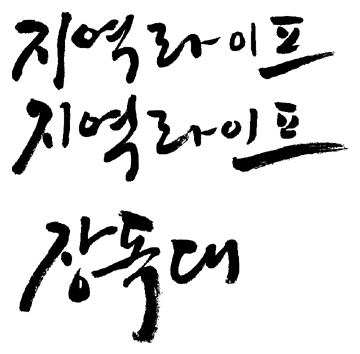 지역라이프
지역라이프
장독대